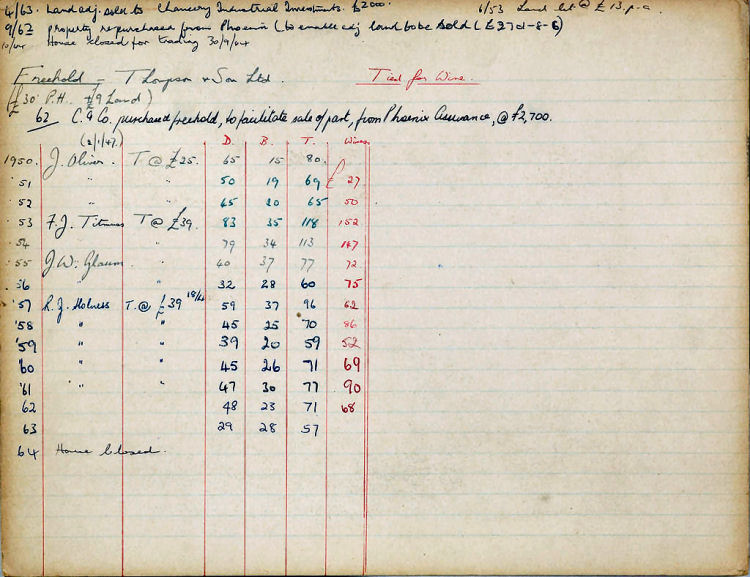 4/63. Land adj. sold to Chancery Industrial Investments. £2000. 6/53 Land let @ £13. p.a
9/62 Property repurchased from Phoenix (to enable adj land to be sold (£2701-8-6)
10/64 House closed for trading 30/9/64
Freehold - Thompson & Son Ltd. Tied for Wine.
(£30 P.H. £9 Land)
62 C. & Co. purchased freehold, to facilitate sale of part, from Phoenix Assurance, @ £2,700.
(2/1/47.) D. B. T. Wines
1950. J. Oliver. T @ £25. 65 15 80.
'51 " " 50 19 69 £ 27
'52 " " 45 20 65 50
'53 F.J. Titmuss T @ £39. 83 35 118 152
'54 " 79 34 113 147
'55 J.W. " 40 37 77 72
'56 " " 32 28 60 75
'57 R.J. Holness T. @ £39 59 37 96 62
'58 " " 45 25 70 86
'59 " " 39 20 59 52
'60 " " 45 26 71 69
'61 " " 47 30 77 90
62 48 23 71 68
63 29 28 57
64 House closed.